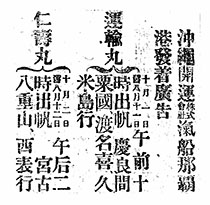 沖繩開運株式會社汽船那覇
港發着廣告
運輸丸
十月二一日午前十
時出帆慶良間
粟國渡名喜久
米島行
仁壽丸
十月二一日午后二
時出帆宮古
八重山西表行